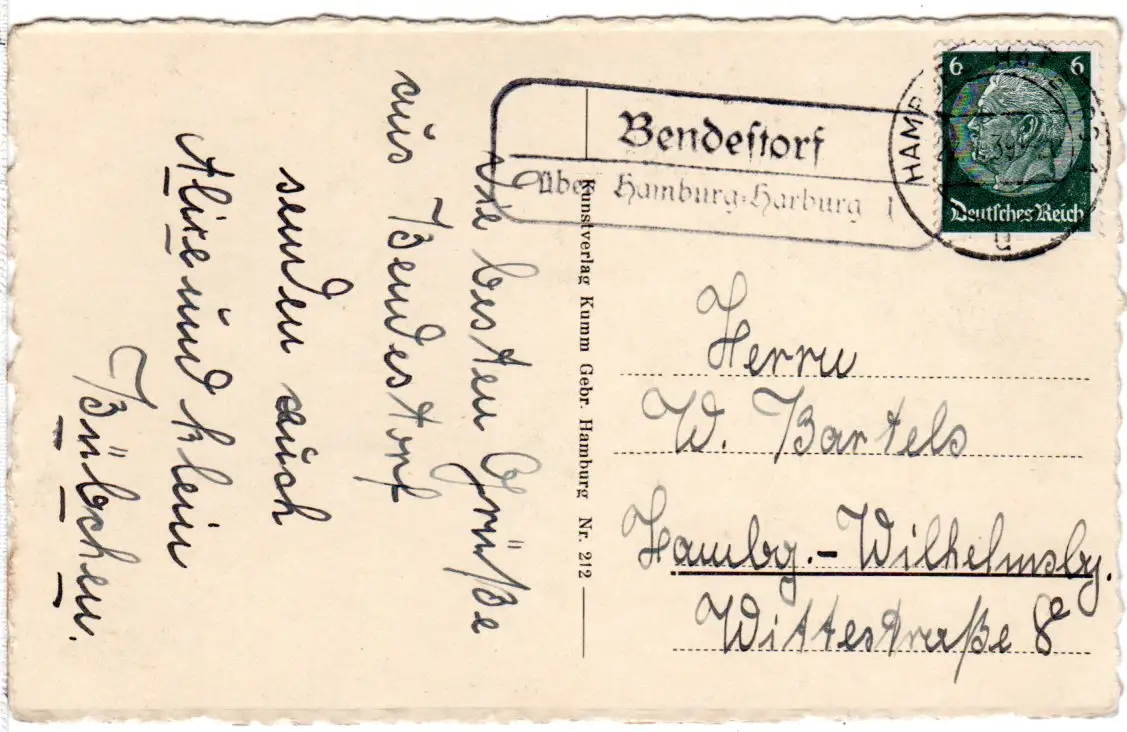 Die besten Grüße
aus Bendestorf
senden auch
und klein
Bübchen.
Kunstverlag Kumm Gebr. Hamburg Nr. 212
Bendestorf
über Hamburg-Harburg 1
6 6
Deutsches Reich
Herrn
W. Bartels
Hambg.-Wilhelmsbg.
Wittestraße 8